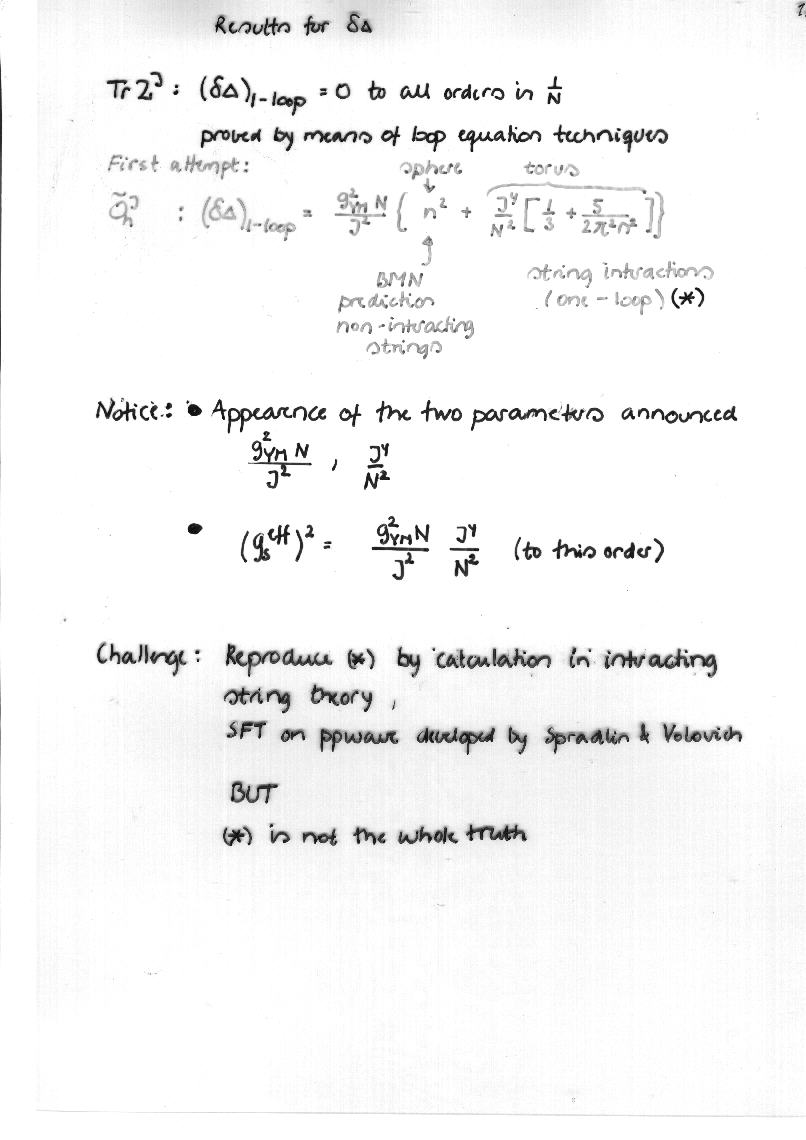 Results for δΔ
Tr Z^J : (δΔ)_{1-loop} = 0 to all orders in 1/N
proved by means of loop equation techniques
First attempt: sphere torus
Õ_n^J : (δΔ)_{1-loop} = g²_YM N / J² { n² + J⁴/N² [ 1/3 + 5/(2π²n²) ] }
BMN string interactions
prediction (one-loop) (*)
non-interacting
strings
Notice: • Appearence of the two parameters announced
g²_YM N / J² , J⁴/N²
• (g_s^eff)² = g²_YM N / J² J⁴/N² (to this order)
Challenge: Reproduce (*) by calculation in interacting
string theory,
SFT on ppwave developed by Spradlin & Volovich
BUT
(*) is not the whole truth